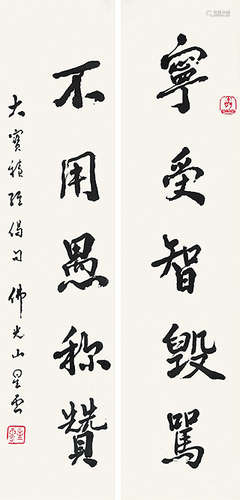 寧受智毀罵
不用愚称贊
大寶積經偈句 佛光山星雲